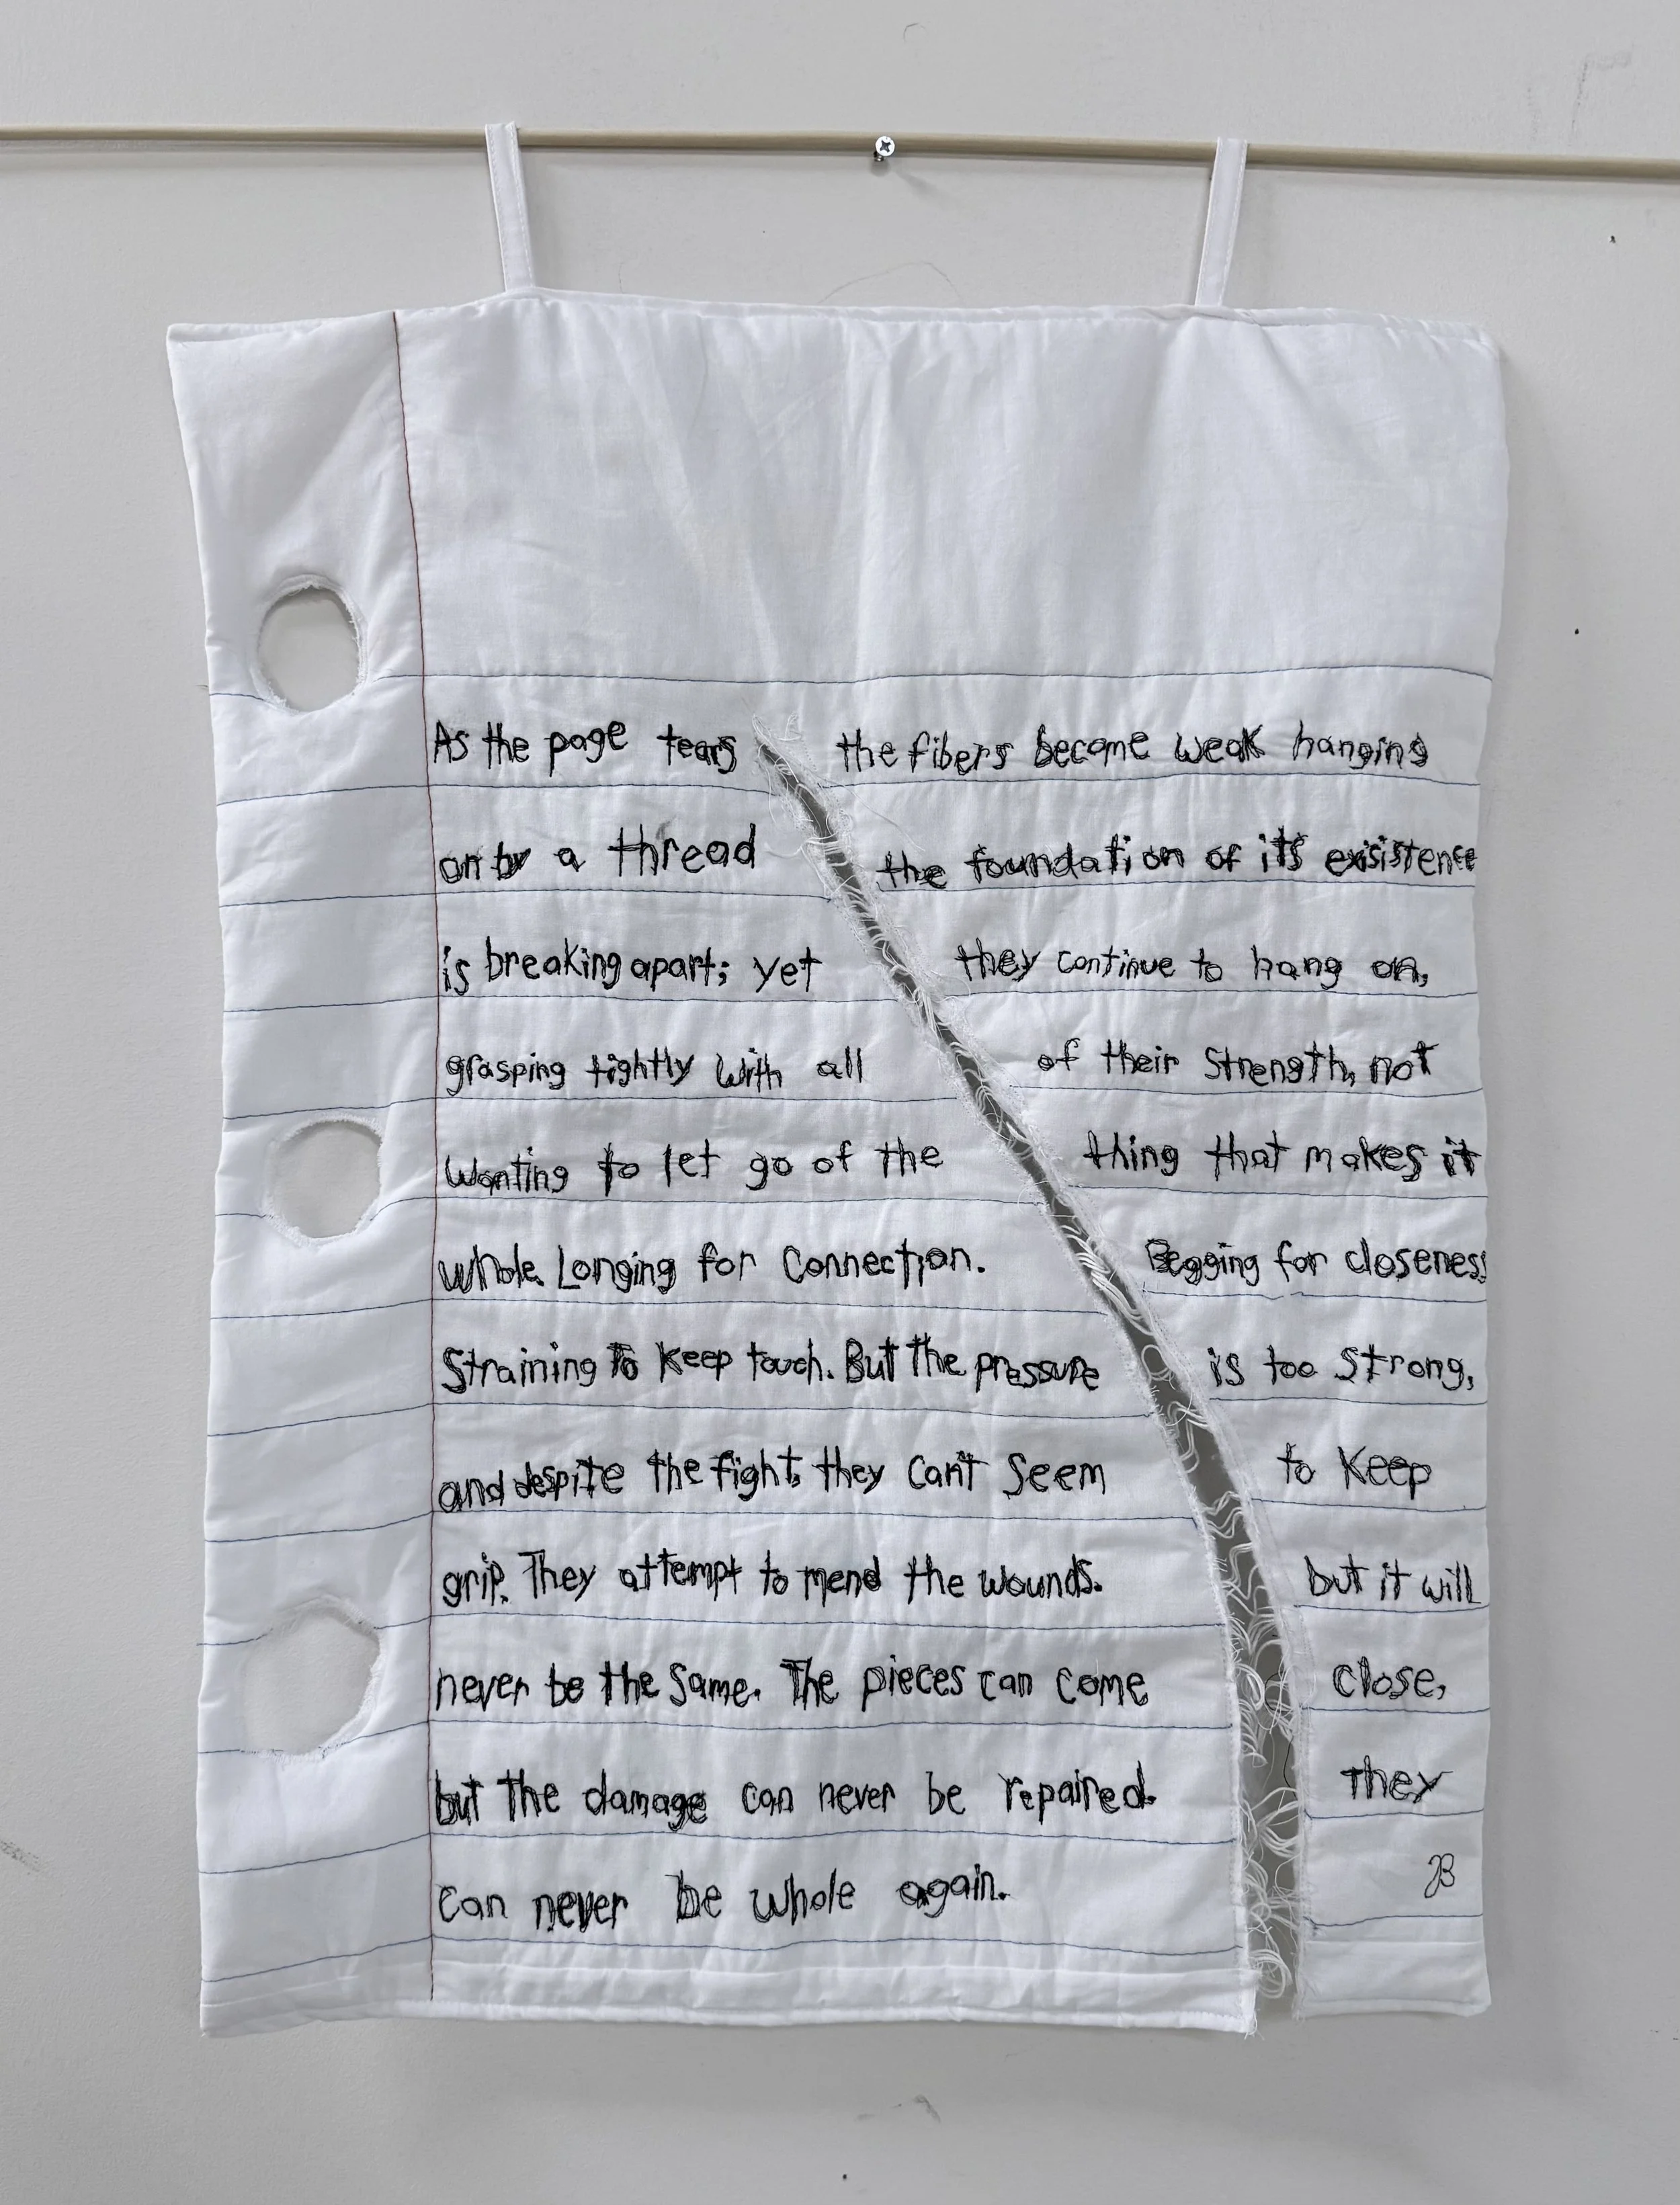 As the page tears the fibers become weak hanging
on by a thread the foundation of its exisistence
is breaking apart; yet they continue to hang on,
grasping tightly with all of their Strength, not
Wanting to let go of the thing that makes it
whole. Longing for Connection. Begging for closeness
Straining To Keep touch. But The pressure is too Strong,
and despite the fight, they Can't Seem to Keep
grip. They attempt to mend the wounds. but it will
never be the Same. The pieces can come close,
but The damage can never be repaired. They
can never be whole again.
JB